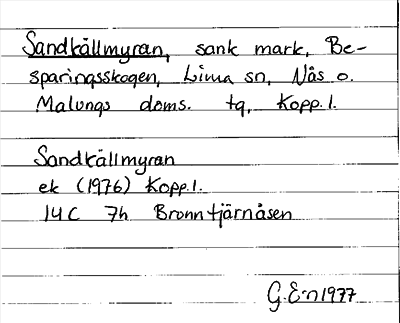 Sandkällmyran, sank mark, Be-
sparingsskogen, Lima sn, Nås o.
Malungs doms. tg, Kopp. l.
Sandkällmyran
ek (1976) Kopp. l.
14 C 7h Bronntjärnåsen
G.E-n 1977